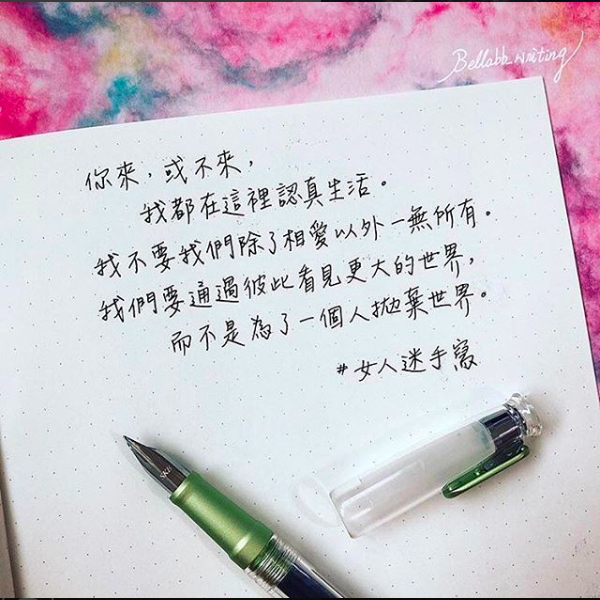 Bellabb writing
你來，或不來，
我都在這裡認真生活。
我不要我們除了相愛以外一無所有。
我們要通過彼此看見更大的世界，
而不是為了一個人拋棄世界。
#女人迷手寫